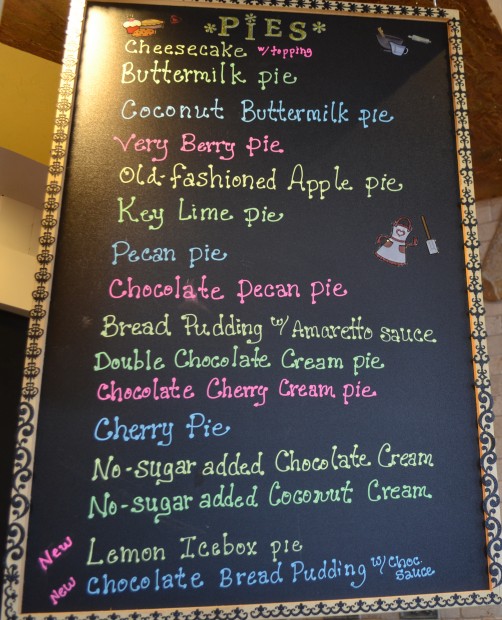 *PIES*
Cheesecake w/topping
Buttermilk pie
Coconut Buttermilk pie
Very Berry pie
Old-fashioned Apple pie
Key Lime pie
Pecan pie
Chocolate pecan pie
Bread Pudding w/ Amaretto sauce
Double Chocolate Cream pie
Chocolate Cherry Cream pie
Cherry Pie
No-sugar added Chocolate Cream
No-sugar added Coconut Cream
New Lemon Icebox pie
New Chocolate Bread Pudding w/ Choc. sauce